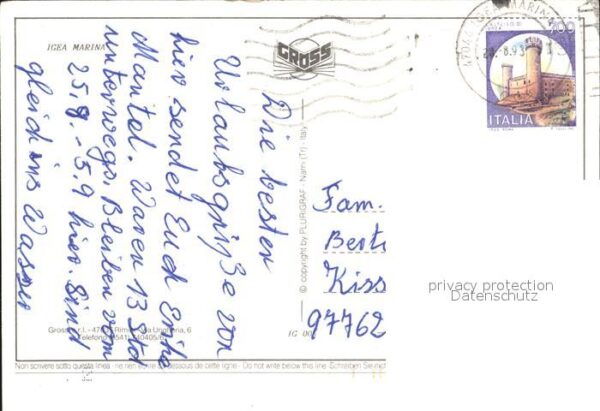 IGEA MARINA
GROSS
47044 IGEA MARINA
8.93
700
ITALIA
Die besten
Urlaubsgrüße von
hier sendet Euch Erika
Mantel. Waren 13 Std
unterwegs. Bleiben vom
25.8. - 5.9 hier. Sind
gleich ins Wasser
© copyright by PLURIGRAF - Narni (Tr) - Italy
Fam.
Bert
Kiss
97762
privacy protection
Datenschutz
Gross s.r.l. - 47 Rimini Via Ungheria, 6
Telefono
IG
Non scrivere sotto questa linea - ne rien écrire au dessous de cette ligne - Do not write below this line - Schreiben Sie nicht